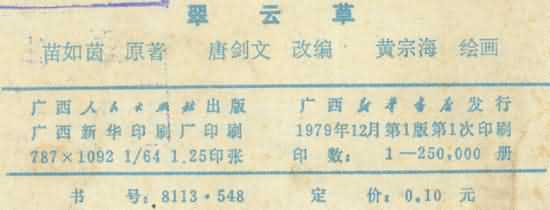 翠云草
苗如茵 原著 唐剑文 改编 黄宗海 绘画
广西人民出版社出版 广西新华书店发行
广西新华印刷厂印刷 1979年12月第1版第1次印刷
787×1092 1/64 1.25印张 印数：1—250,000 册
书号：8113·548 定价：0.10 元